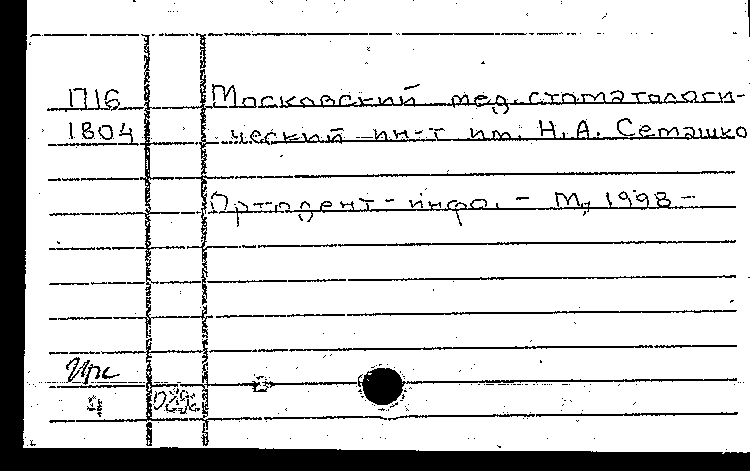 П16 Московский мед. стоматологи-
1804 ческий ин-т им. Н.А. Семашко
Ортодент-инфо. - М, 1998 -